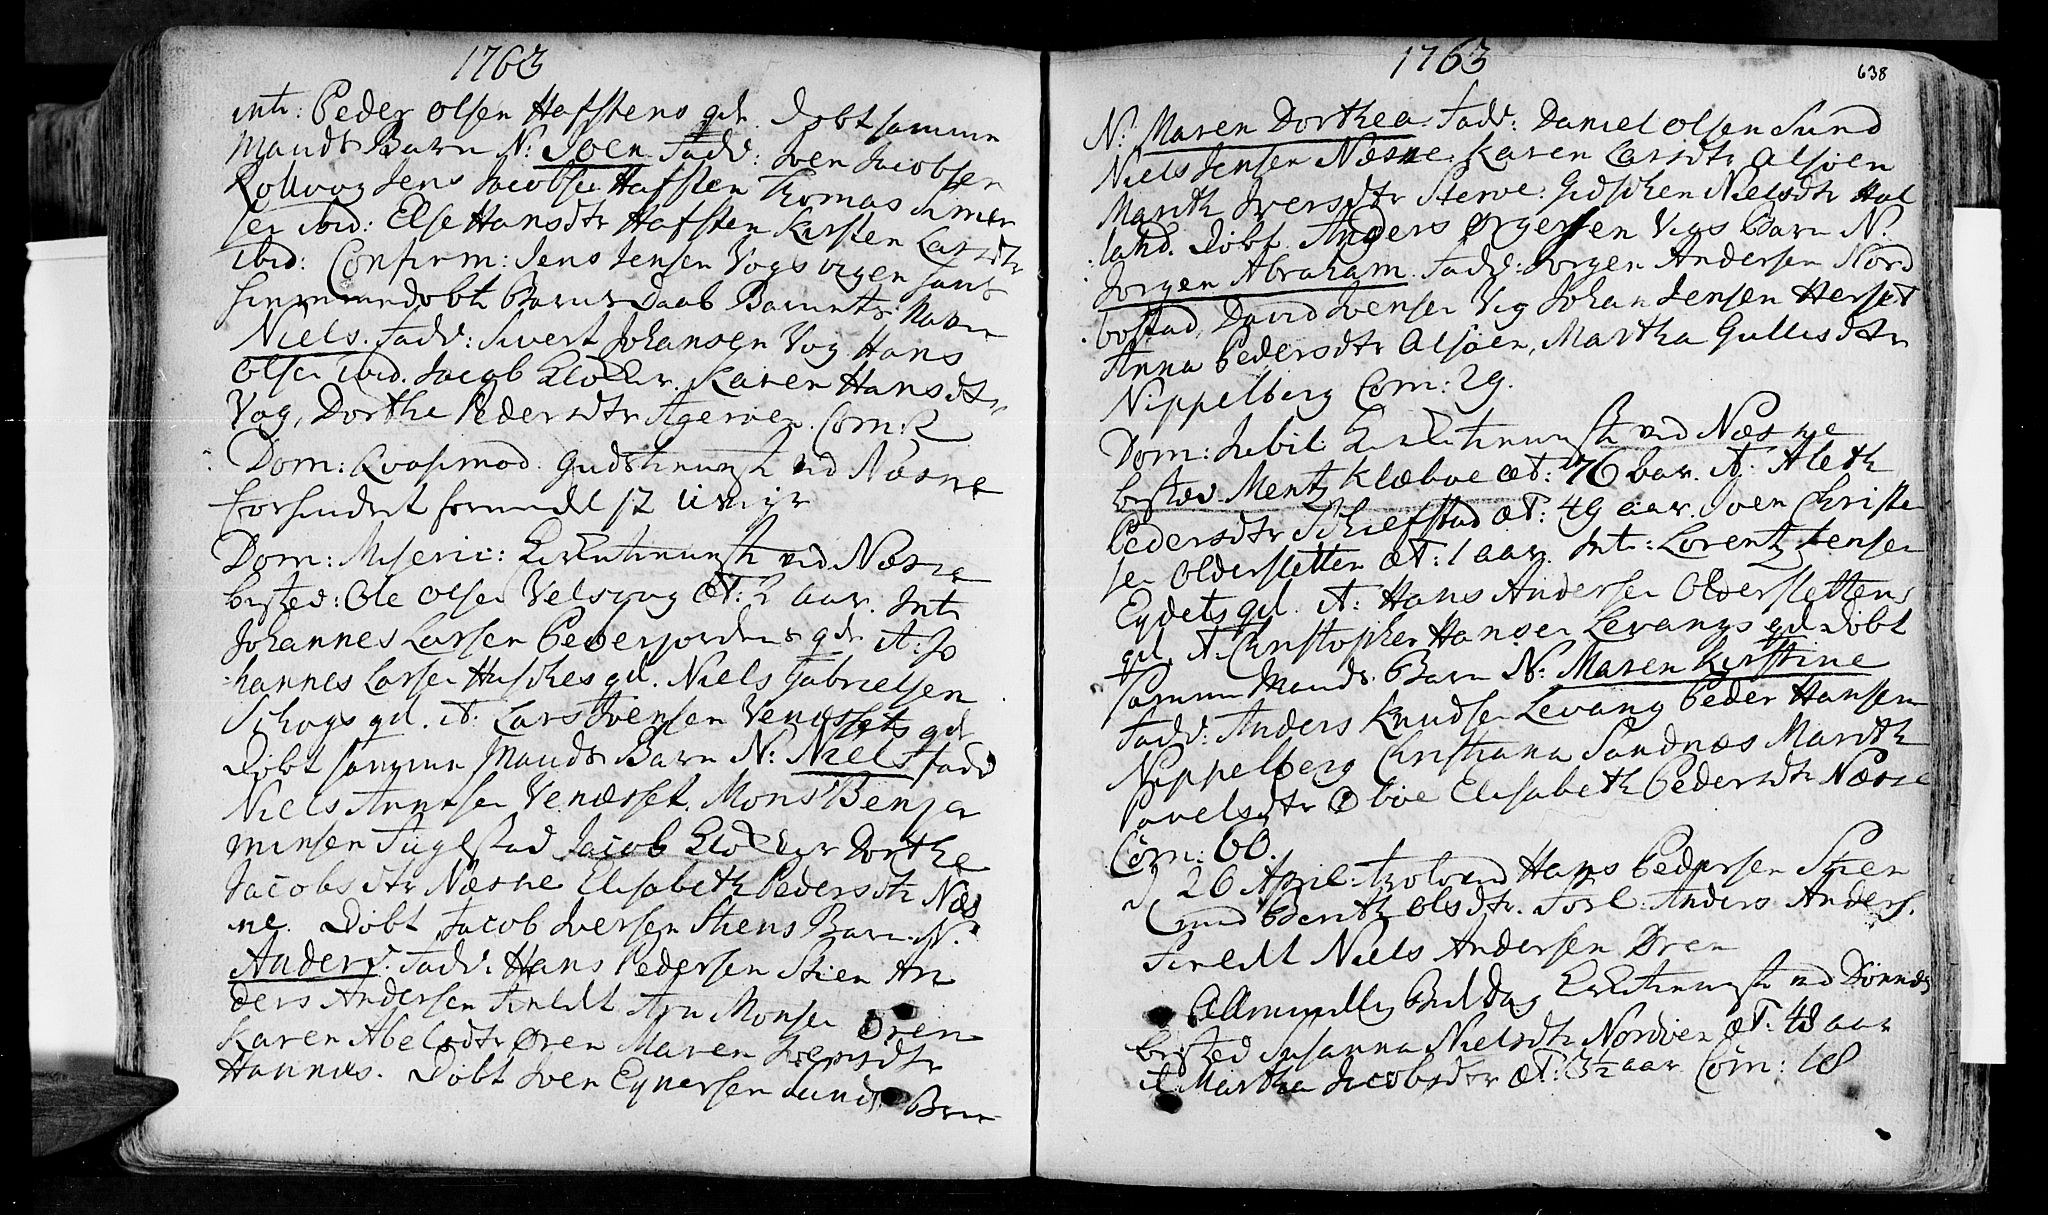 1763
int: Peder Olsen Hafstens gd. døbt samme
Mands Barn N: Joen Fadd: Iven Jacobsen
Kollvog Jens Jacobsen Hafsten Thomas Simen
sen ibid: Else Hansdtr Hafsten Kirsten Larsdtr
ibid: Confirm: Jens Jensen Vogs uegen fant
hiemmedøbte Barns Daab Barnets Navn
Niels. Fadd: Sivert Johansen Vog Hans
Olsen ibid. Jacob Klokker. Karen Hansdtr
Vog, Dorthe Pedersdtr Ageröen. Com: 2
Dom: Qvasimod: Gudstienniste ved Næsne
forhindret formedelst Uveyr
Dom: Miseric: Kirketienniste ved Næsne
begrved: Ole Olsen Velsvog Æt: 2 aar. Int:
Johannes Larsen Bederjordens gd. it: Jo
hannes Larsen Huskes gd. Niels Gabrielsen
Skogs gd. it: Lars Ivensen Venæssets gd
Døbt samme Mands Barn N: Niels Fadd
Niels Arnesen Venæsset. Mons Benja
minsen Fuglstad Jacob Klokker Dorthe
Jacobsdtr Næsne Elisabeth Pedersdtr Næs
ne. Døbt Jacob Iversen Stiens Barn N.
Anders. Fadd: Hans Pedersen Stien An
ders Andersen Fineidt Arn Monsen Øren
Karen Abelsdtr Øren Maren Iversdtr
Hannæs. Döbt Iven Eynersen Sunds Barn
1763
638
N: Maren Dorthea. Fadd: Daniel Olsen Sund
Niels Jensen Næsne. Karen Larsdtr Alsöen
Marith Iversdtr Steroe. Gidsken Nielsdtr Hol
land. Døbt Anders Ørgersen Vigs Barn N.
Jørgen Abraham. Fadd: Jørgen Andersen Nord
bostad, David Ivensen Vig Johan Jensen Herset
Anna Pedersdtr Alsöen, Martha Gullisdtr
Nippelberg Com: 29.
Dom: Jubil: Kirketienniste ved Næsne
begrved Mentz Klæboe æt: 76 aar. it: Aleth
Pedersdtr Skiefstad Æt: 49 aar. Iven Christen
sen Oldersletten Æt: 1 aar. Int: Lorentz Jensen
Eydets gd. it: Hans Andersen Olderslettens
gd. it. Christopher Hansen Levangs gd Døbt
samme Mands Barn N: Maren Kirstine
Fadd: Anders Knudsen Levang Peder Hansen
Nippelberg Christiana Sandnæs Marith
Povelsdtr Øboe Elisabeth Pedersdtr Næsne
Com: 60.
d. 26 April: trolovd Hans Pedersen Stien
med Berith Olsdtr. Forl: Anders Anders.
Fineidt Niels Andersen Øren
Allmindelig Beddag Kirketienniste ved Dönnæs
begrved Susanna Nielsdtr Nordvig æt: 48 aar
it Martha Jacobsdtr Æt: 3½ aar Com: 18